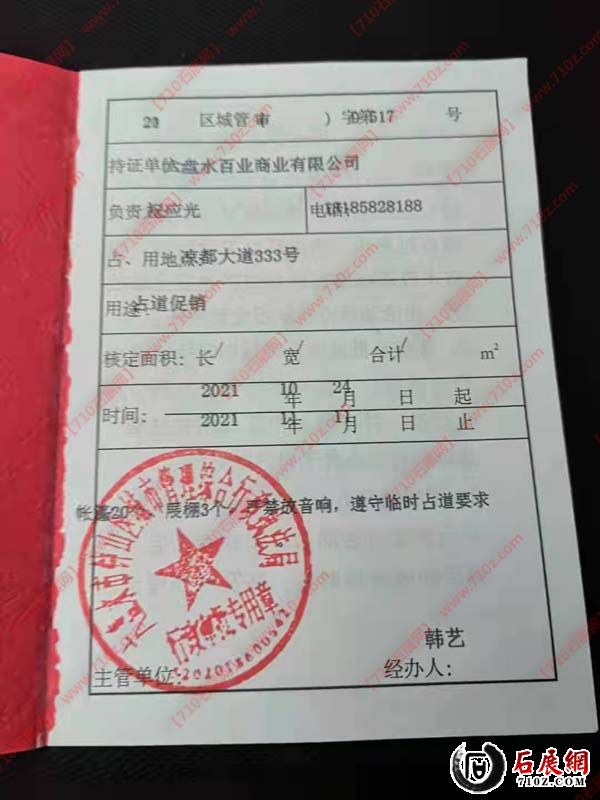 21 区域管(市 )字第 0517 号
持证单位:六盘水百业商业有限公司
负责 赵应光 电话:18185828188
占、用地点:凉都大道333号
用途:占道促销
核定面积:长/ 宽/ 合计/ m²
时间:
2021年 10月 24日 起
2021年 11月 17日 止
帐篷20个、展棚3个,严禁放音响,遵守临时占道要求
行政审批专用章
韩艺
主管单位: 经办人:
【710石展网】http://www.710z.com
石展網
710Z.COM